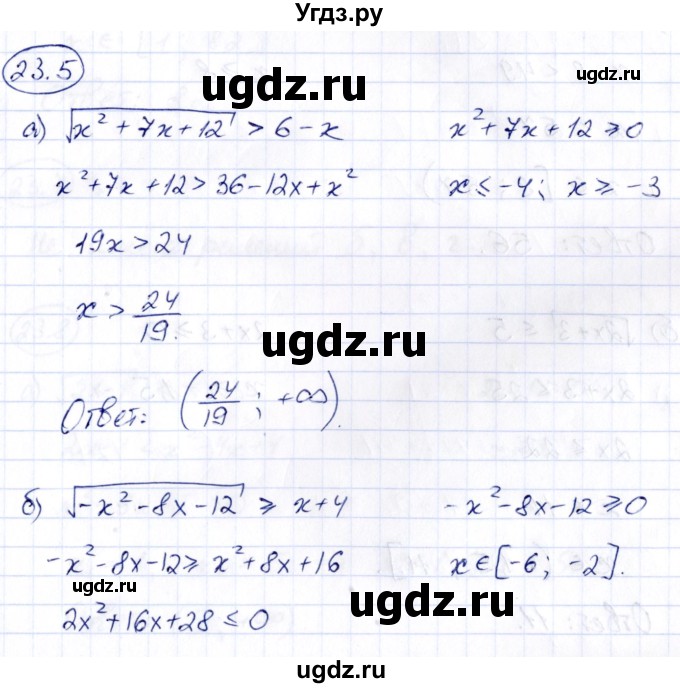 Угдз.ру
23.5
ugdz.ru
ugdz.ru
а) √x² + 7x + 12 > 6 − x     x² + 7x + 12 ≥ 0
x² + 7x + 12 > 36 − 12x + x²     x ≤ −4; x ≥ −3
19x > 24
ugdz.ru
x > 24/19.
ugdz.ru
ugdz.ru
Ответ: (24/19; +∞).
ugdz.ru
б) √−x² − 8x − 12 ≥ x + 4     −x² − 8x − 12 ≥ 0
−x² − 8x − 12 ≥ x² + 8x + 16     x ∈ [−6; −2].
ugdz.ru
ugdz.ru
2x² + 16x + 28 ≤ 0
ugdz.ru